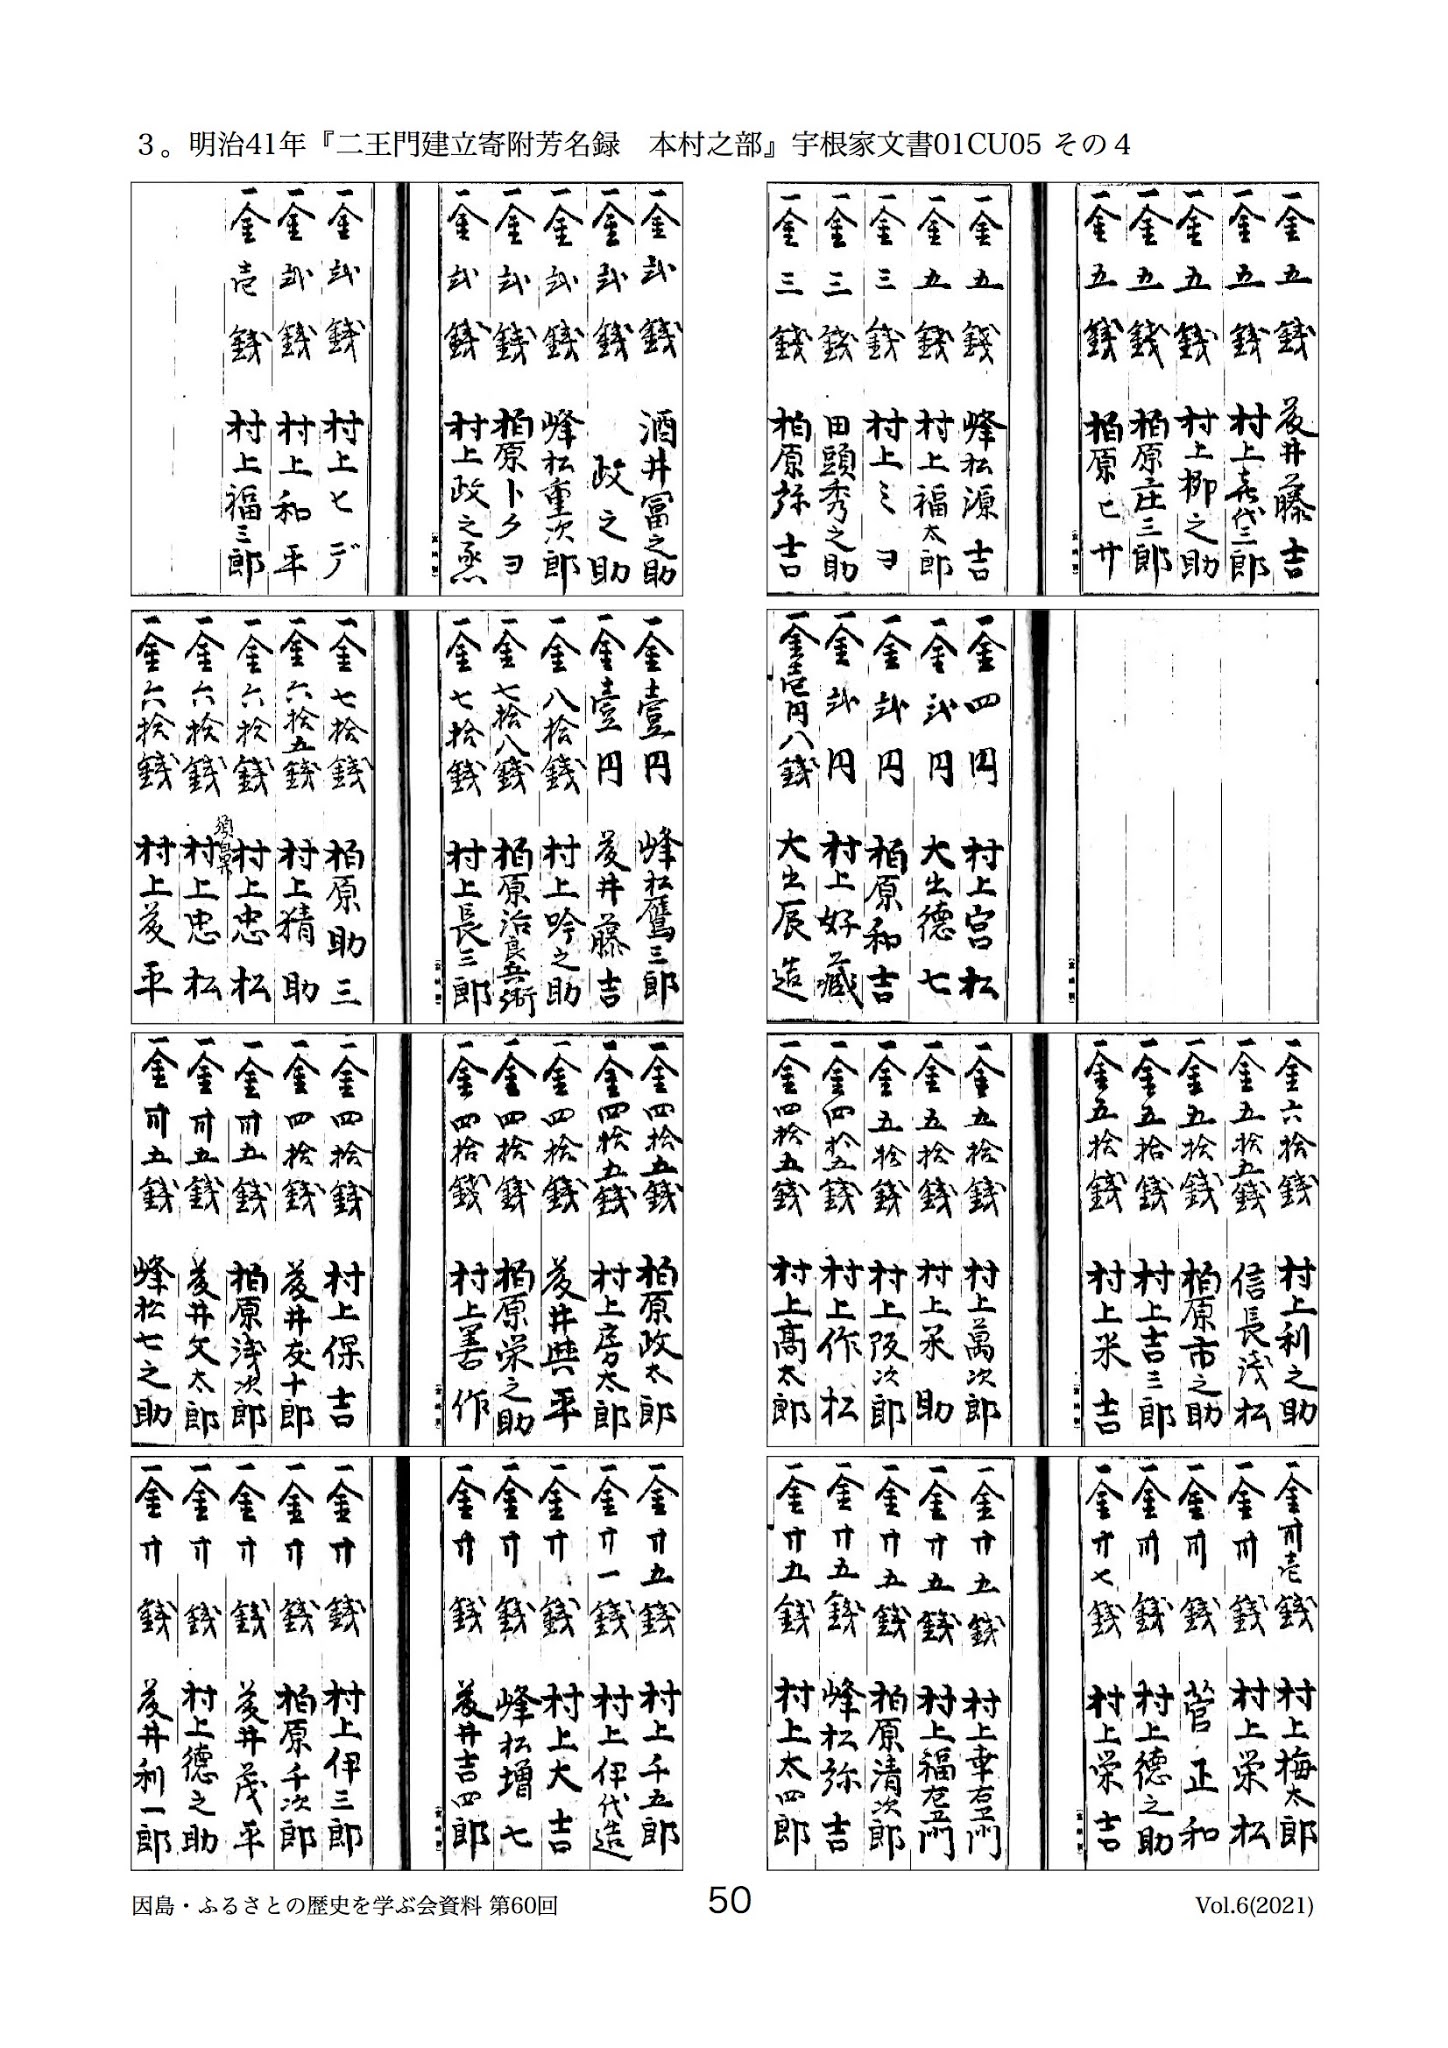 ３。明治41年『二王門建立寄附芳名録　本村之部』宇根家文書01CU05 その４
一金五銭 菱井藤吉
一金五銭 村上喜代三郎
一金五銭 村上柳之助
一金五銭 柏原庄三郎
一金五銭 柏原ヒサ
一金五銭 峰松源吉
一金五銭 村上福太郎
一金三銭 村上ミヨ
一金三銭 田頭秀之助
一金三銭 柏原弥吉
一金弐銭 酒井冨之助
一金弐銭 政之助
一金弐銭 峰松重次郎
一金弐銭 柏原トクヨ
一金弐銭 村上政之丞
一金弐銭 村上ヒデ
一金弐銭 村上和平
一金壱銭 村上福三郎
一金四円 村上宮松
一金弐円 大出徳七
一金弐円 柏原和吉
一金弐円 村上好蔵
一金壱円八銭 大出辰造
一金壹円 峰松鷹三郎
一金壹円 菱井藤吉
一金八拾銭 村上吟之助
一金七拾八銭 柏原治良兵衛
一金七拾銭 村上長三郎
一金七拾銭 柏原助三
一金六拾五銭 村上猪助
一金六拾銭 村上忠松
一金六拾銭 村上忠松
一金六拾銭 村上菱平
一金六拾銭 村上利之助
一金五拾五銭 信長浅松
一金五拾銭 柏原市之助
一金五拾銭 村上吉三郎
一金五拾銭 村上米吉
一金五拾銭 村上萬次郎
一金五拾銭 村上 助
一金五拾銭 村上阪次郎
一金四拾五銭 村上作松
一金四拾五銭 村上高太郎
一金四拾五銭 柏原政太郎
一金四拾五銭 村上房太郎
一金四拾銭 菱井與平
一金四拾銭 柏原栄之助
一金四拾銭 村上善作
一金四拾銭 村上保吉
一金四拾銭 菱井友十郎
一金卅五銭 柏原浅次郎
一金卅五銭 菱井文太郎
一金卅五銭 峰松七之助
一金卅壱銭 村上梅太郎
一金卅銭 村上栄松
一金卅銭 菅正和
一金卅銭 村上徳之助
一金廿七銭 村上栄吉
一金廿五銭 村上幸右衛門
一金廿五銭 村上福右衛門
一金廿五銭 柏原清次郎
一金廿五銭 峰松弥吉
一金廿五銭 村上太四郎
一金廿五銭 村上千五郎
一金廿一銭 村上伊代造
一金廿銭 村上大吉
一金廿銭 峰松増七
一金廿銭 菱井吉四郎
一金廿銭 村上伊三郎
一金廿銭 柏原千次郎
一金廿銭 菱井茂平
一金廿銭 村上徳之助
一金廿銭 菱井利一郎
因島・ふるさとの歴史を学ぶ会資料 第60回
50
Vol.6(2021)